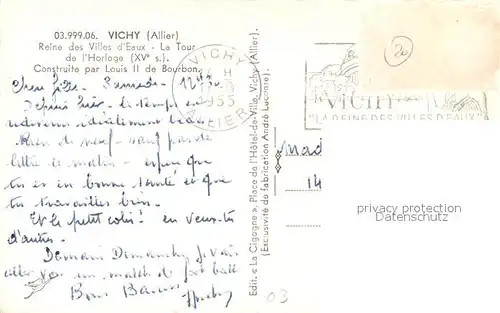 03.999.06. VICHY (Allier)
Reine des Villes d'Eaux - La Tour
de l'Horloge (XVe s.).
Construite par Louis II de Bourbon.
VICHY
H
1955
ALLIER
20
VICHY
"LA REINE DES VILLES D'EAUX"
Samedi 12h
Depuis hier le temps est
redevenu idéalement beau
Rien de neuf - sauf pas de
lettre ce matin - espere que
tu es en bonne santé et que
tu travailles bien.
Et le petit colis! en veux-tu
d'autres.
Demain Dimanche je vais
aller voir un match de foot ball
Bons Baisers
Edit. « La Cigogne », Place de l'Hôtel-de-Ville, Vichy (Allier).
(Exclusivité de fabrication André Leconte).
Mad
14
03
privacy protection
Datenschutz